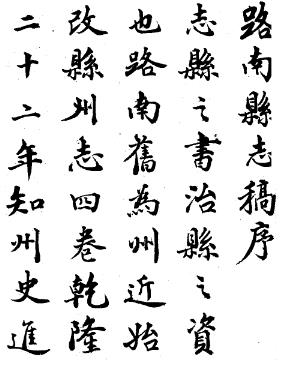 路南縣志稿序
志縣之書治縣之資
也路南舊為州近始
改縣州志四卷乾隆
二十二年知州史進